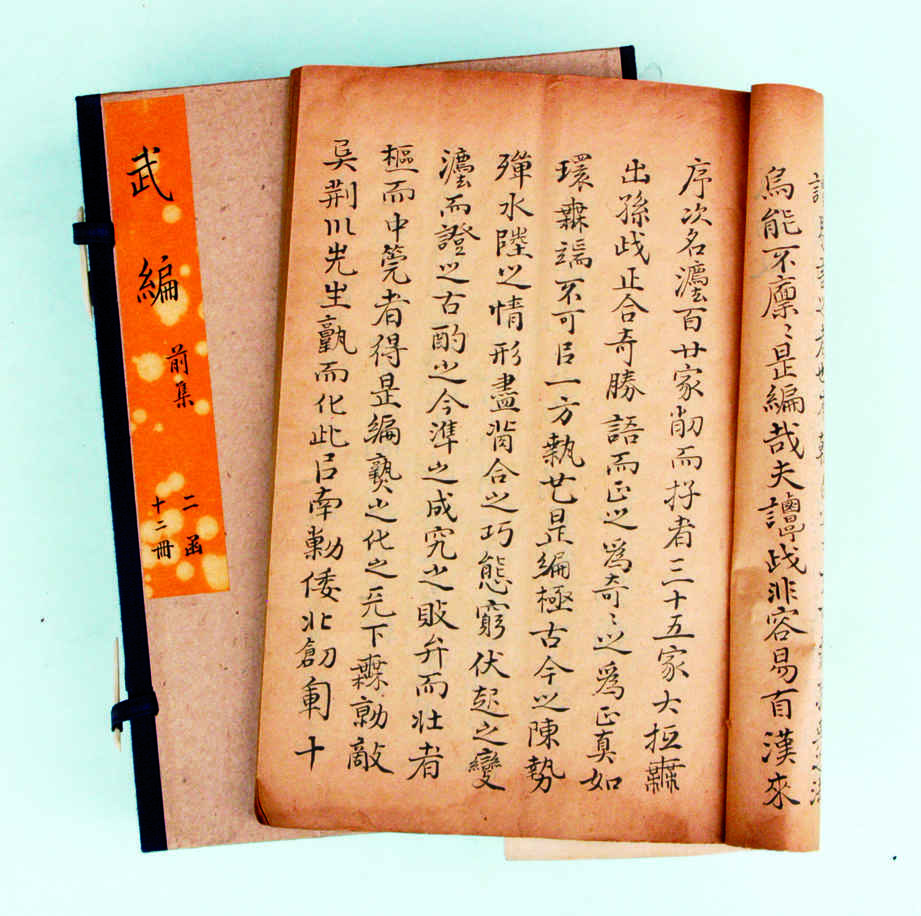 武編
前集
二函
十二冊
烏能不廩〻昰編哉夫譚战非容易自漢來
序次名灋百廿家削而抒者三十五家大抵霖
出孫战正合奇勝語而正之爲奇〻之爲正真如
環霖端不可㠯一方執也昰編極古今之陳勢
殫水陸之情形盡背合之巧態窮伏起之變
灋而證之古酌之今準之成究之敗弁而壯者
樞而中筦者得昰編之化之天下霖勍敵
吳荆川先生翫而化此㠯南勦倭北創十